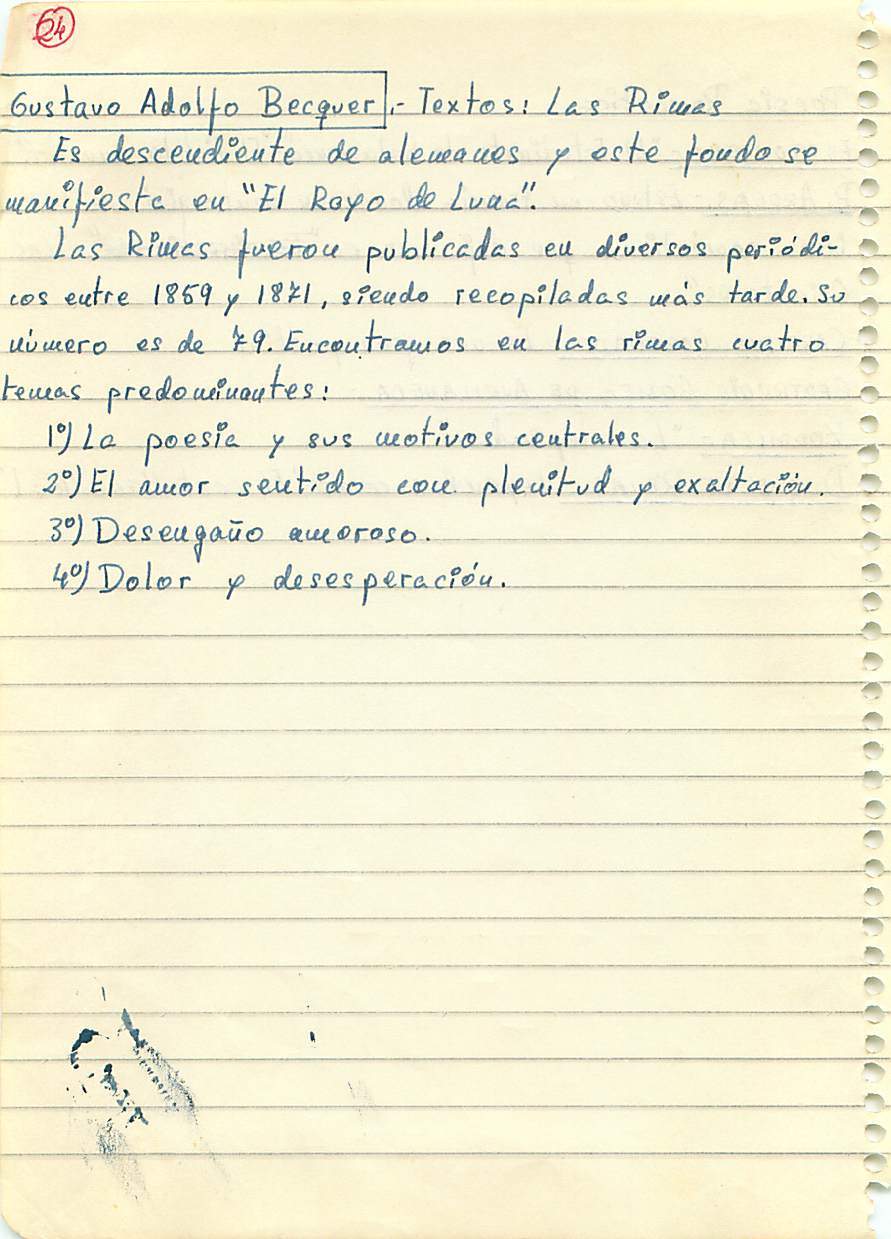 24
Gustavo Adolfo Becquer.- Textos: Las Rimas
Es descendiente de alemanes y este fondo se
manifiesta en "El Rayo de Luna".
Las Rimas fueron publicadas en diversos periódi-
cos entre 1859 y 1871, siendo recopiladas más tarde. Su
número es de 79. Encontramos en las rimas cuatro
temas predominantes:
1º) La poesía y sus motivos centrales.
2º) El amor sentido con plenitud y exaltación.
3º) Desengaño amoroso.
4º) Dolor y desesperación.